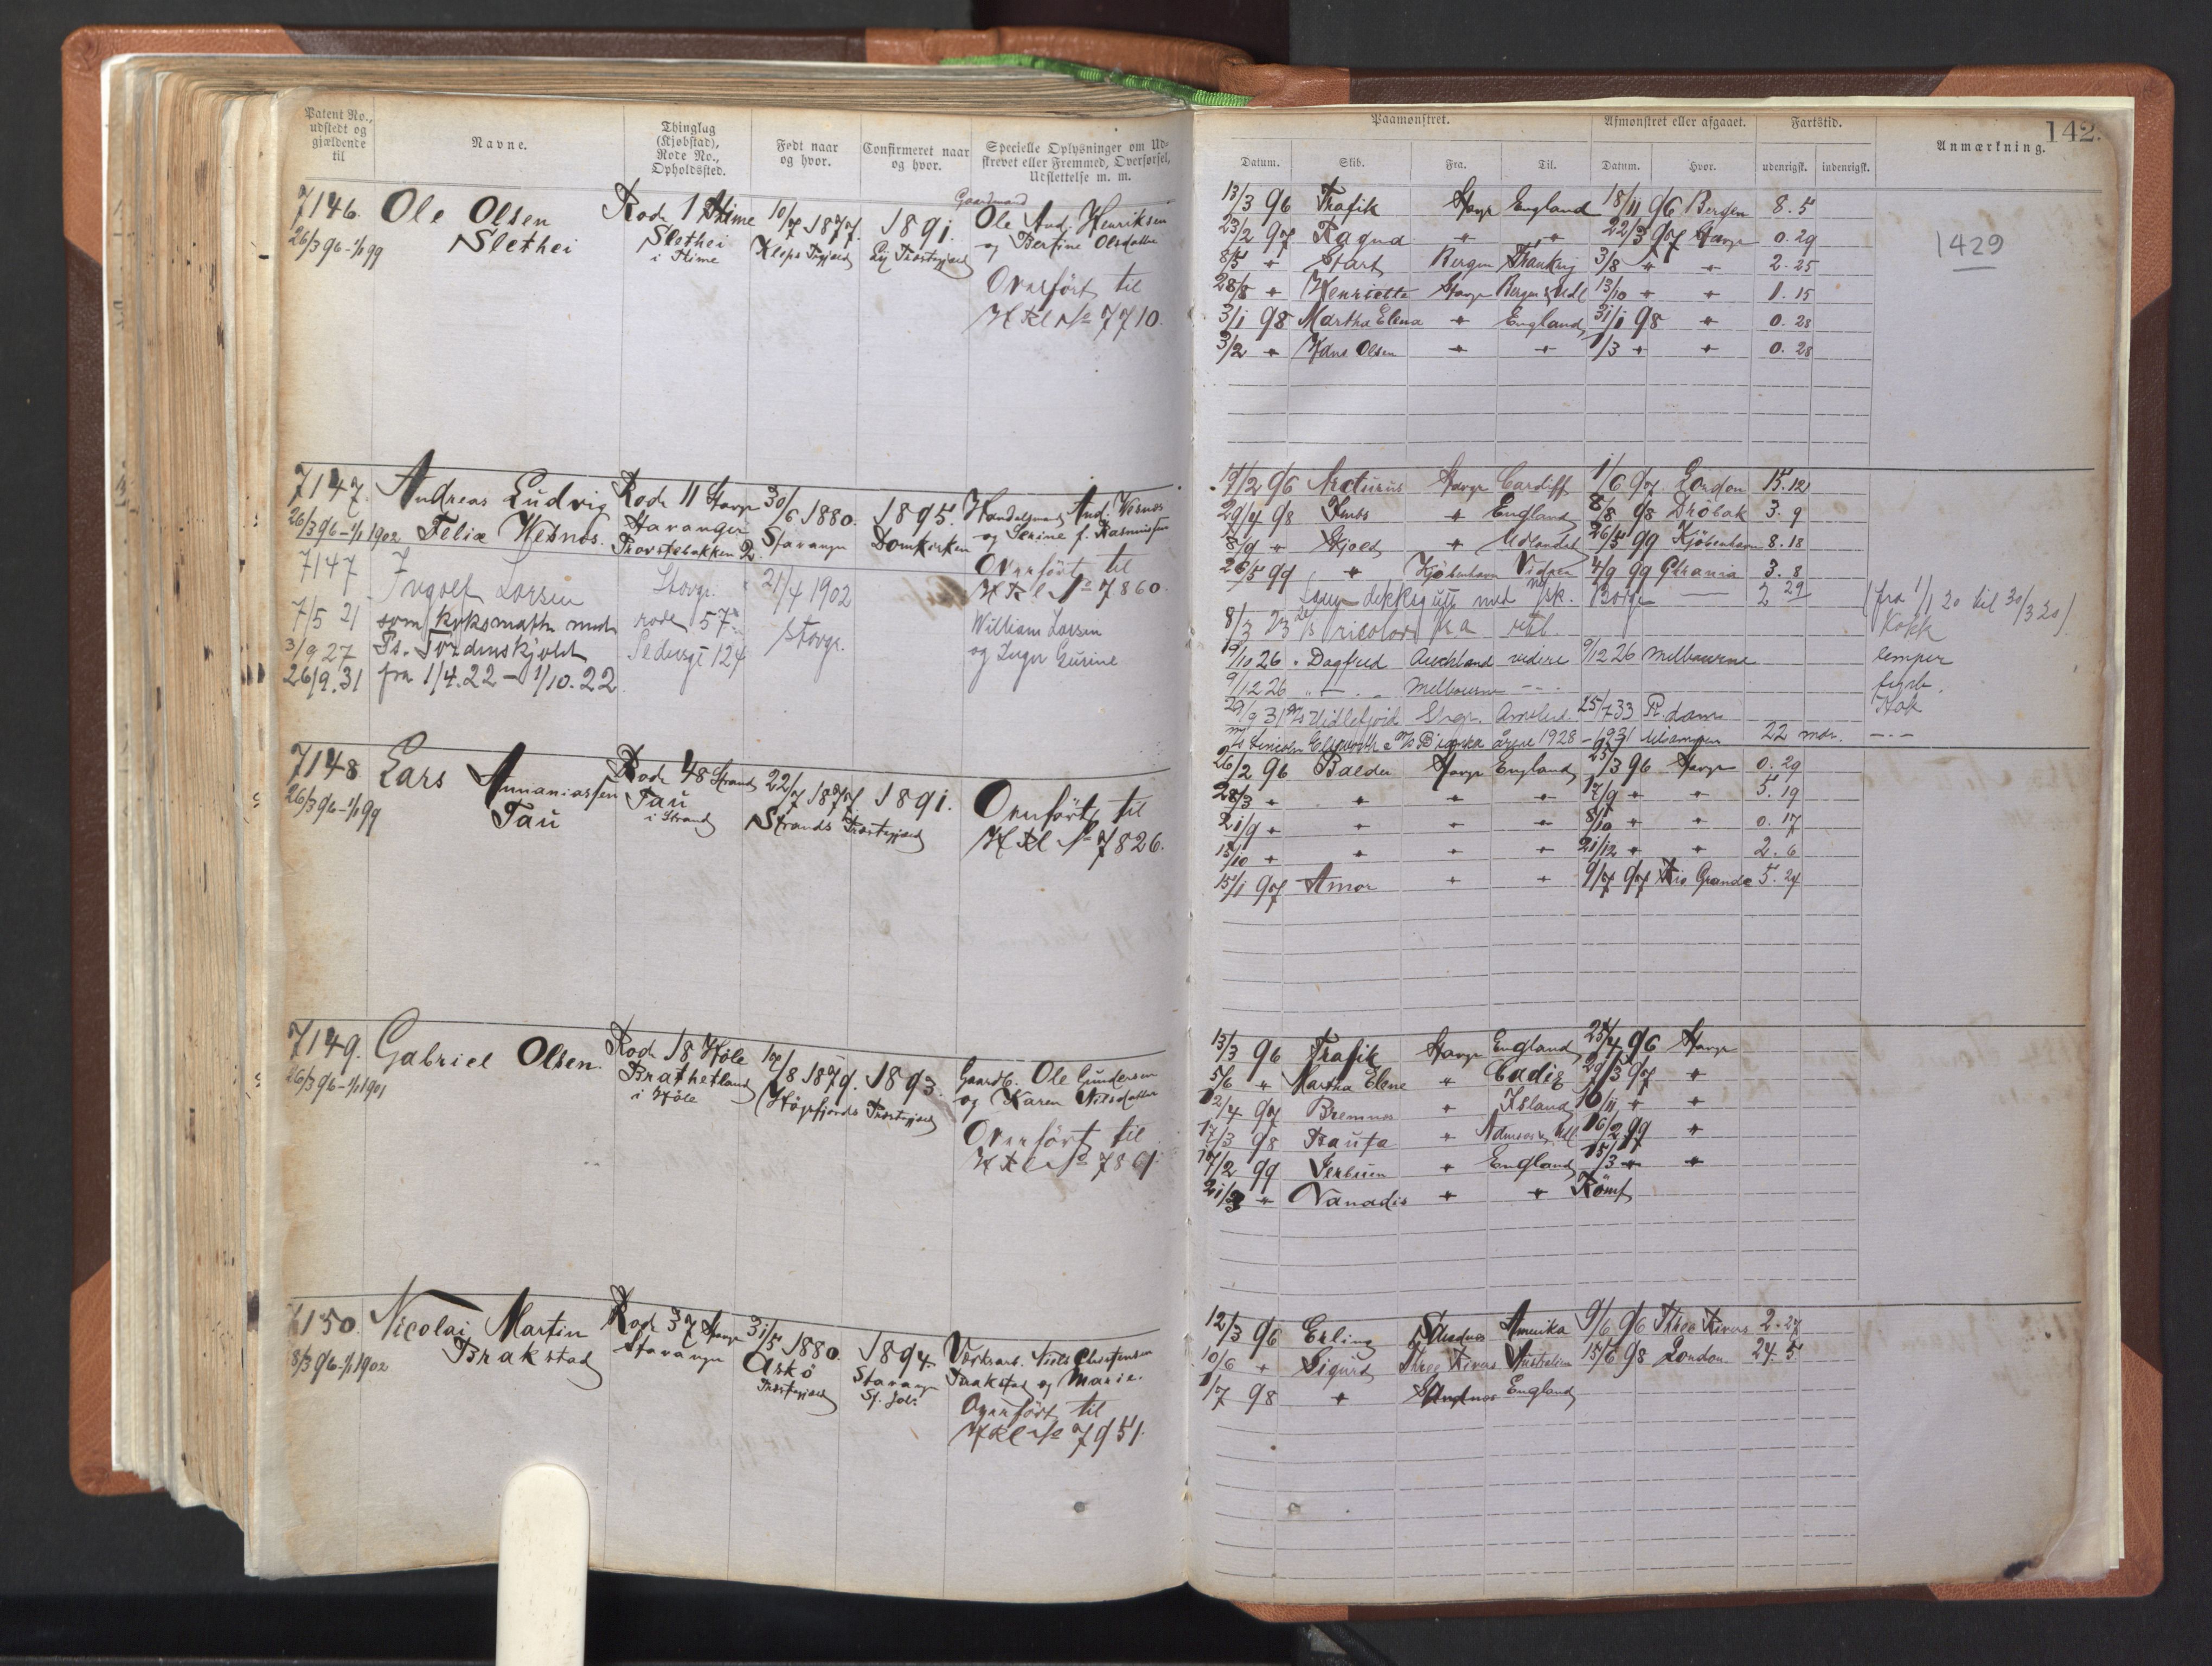 Patent No., udstedt og gjældende til
Navne.
Thinglag (Kjøbstad), Rode No., Opholdssted.
Født naar og hvor.
Confirmeret naar og hvor.
Specielle Oplysninger om Udskrevet eller Fremmed, Overførsel, Udslettelse m. m.
7146. Ole Olsen Rode 1 Thime 10/7 1877. 1891. Gaardmand Ole And. Henriksen
26/3 96 - 1/1 99 Slethei Slethei i Thime Kleps Prgjæld Lye Præstegjæld og Bertine Olsdatter
Overført til
H Rl No 7710.
7147. Andreas Ludvig Rode 11 Stavgr 30/6 1880. 1895. Handelsmand And. Wesnes
26/3 96 - 1/1 1902 Felix Wesnes. Stavanger Provstebakken 2. Stavanger Domkirken og Serine f. Rasmussen
Overført til
H Rl No 7860.
7147 Ingolf Larsen Stavgr. 21/4 1902
7/5 21 som koksmath med rode 57 Stavgr. William Larsen
3/9 27 Ss. Tordenskjold Pedersgt 124 og Inger Gurine
26/9.31 fra 1/4.22 - 1/10.22
7148 Lars Annaniassen Rode 48 Strand 22/7 1877. 1891. Overført til
26/3 96 - 1/1 99 Tau Tau i Strand Strands Præstegjæld H Rl No 7826.
7149. Gabriel Olsen. Rode 18 Høle 10/8 1879. 1893. Gaardb. Ole Gundersen
26/3 96 - 1/1 1901 Brathetland i Høle Høgsfjords Præstegjæld og Karen Nilsdatter
Overført til
H Rl No 7861.
7150. Nicolai Martin Rode 37 Stavgr 31/5 1880. 1894. Værksarb. Niels Christensen
8/3 96 - 1/1 1902 Brakstad Stavanger Askø Præstegjæld Stavanger St. Joh. Braakstad og Marie.
Overført til
H Rl No 7951.
142.
Paamønstret. Afmønstret eller afgaaet. Fartstid. Anmærkning.
Datum. Skib. Fra. Til. Datum. Hvor. udenrigsk. indenrigsk.
13/3 96 Trafik Stavgr England 18/11 96 Bergen 8. 5
23/2 97 Ragna " " 22/3 97 Stavgr 0. 29
1429
8/5 " Start Bergen Frankrig 3/8 " " 2. 25
28/8 " Henriette Stavgr Bergen & Udl 13/10 " " 1. 15
3/1 98 Martha Elena " England 31/1 98 " 0. 28
3/2 " Hans Olsen " " 1/3 " " 0. 28
19/2 96 Arcturus Stavgr Cardiff 1/6 97 London 15. 12
29/4 98 " England 8/8 98 Drøbak 3. 9
8/9 " Skjold " Udlandet 26/5 99 Kjøbenhavn 8. 18
26/5 99 " Kjøbenhavn 4/9 99 3. 8
dekksgutt med Borge 2 29 (fra 1/1 20 til 30/3 20)
8/3 23 Kokk
19/10 26 Dagfred Auckland videre 9/12 26 Melbourne lemper
9/12 26 Melbourne fyrb.
29/9 31 Stvgr. 25/7 33 R.dam Kok
Lincoln Ellsworth årene 1928 - 1931 22 mdr. - . -
26/2 96 Balder Stavgr England 25/3 96 Stavgr 0. 29
28/3 " " " " 17/9 " " 5. 19
21/9 " " " " 8/10 " " 0. 17
15/10 " " " " 21/12 " " 2. 6
15/1 97 Amor " " 9/7 97 Rio Grande 5. 24
13/3 96 Trafik Stavgr England 25/4 96 Stavgr
5/6 " Martha Elene " Cadiz 29/3 97 "
12/4 97 Bremnes " Island 10/11 " "
17/3 98 " 16/2 99 "
17/2 99 " England 15/3 " "
21/3 " Vanadis " " Rømt
12/3 96 Erling Sandnes Amerika 9/6 96 Three Rivers 2. 27
10/6 " Sigurd Three Rivers Australien 15/6 98 London 24. 5
1/7 98 " Sandnes England